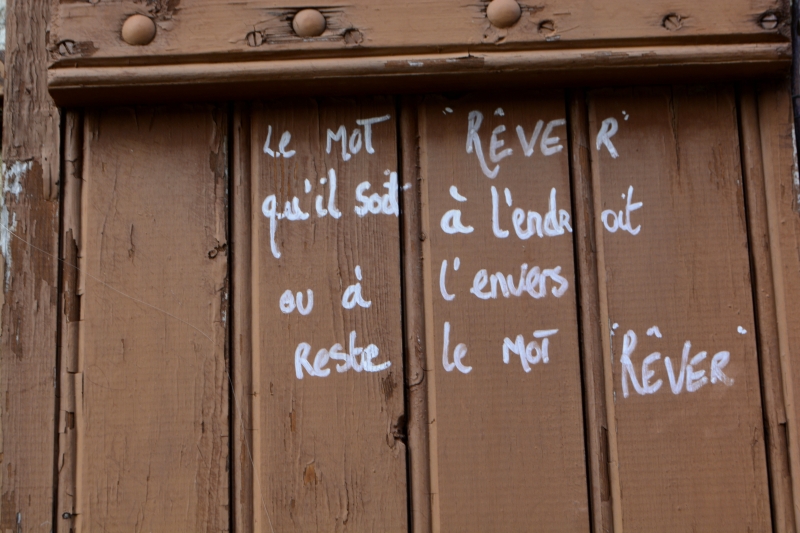 Le MOT "RÊVER"
qu'il soit à l'endroit
ou à l'envers
Reste le MOT "RÊVER"